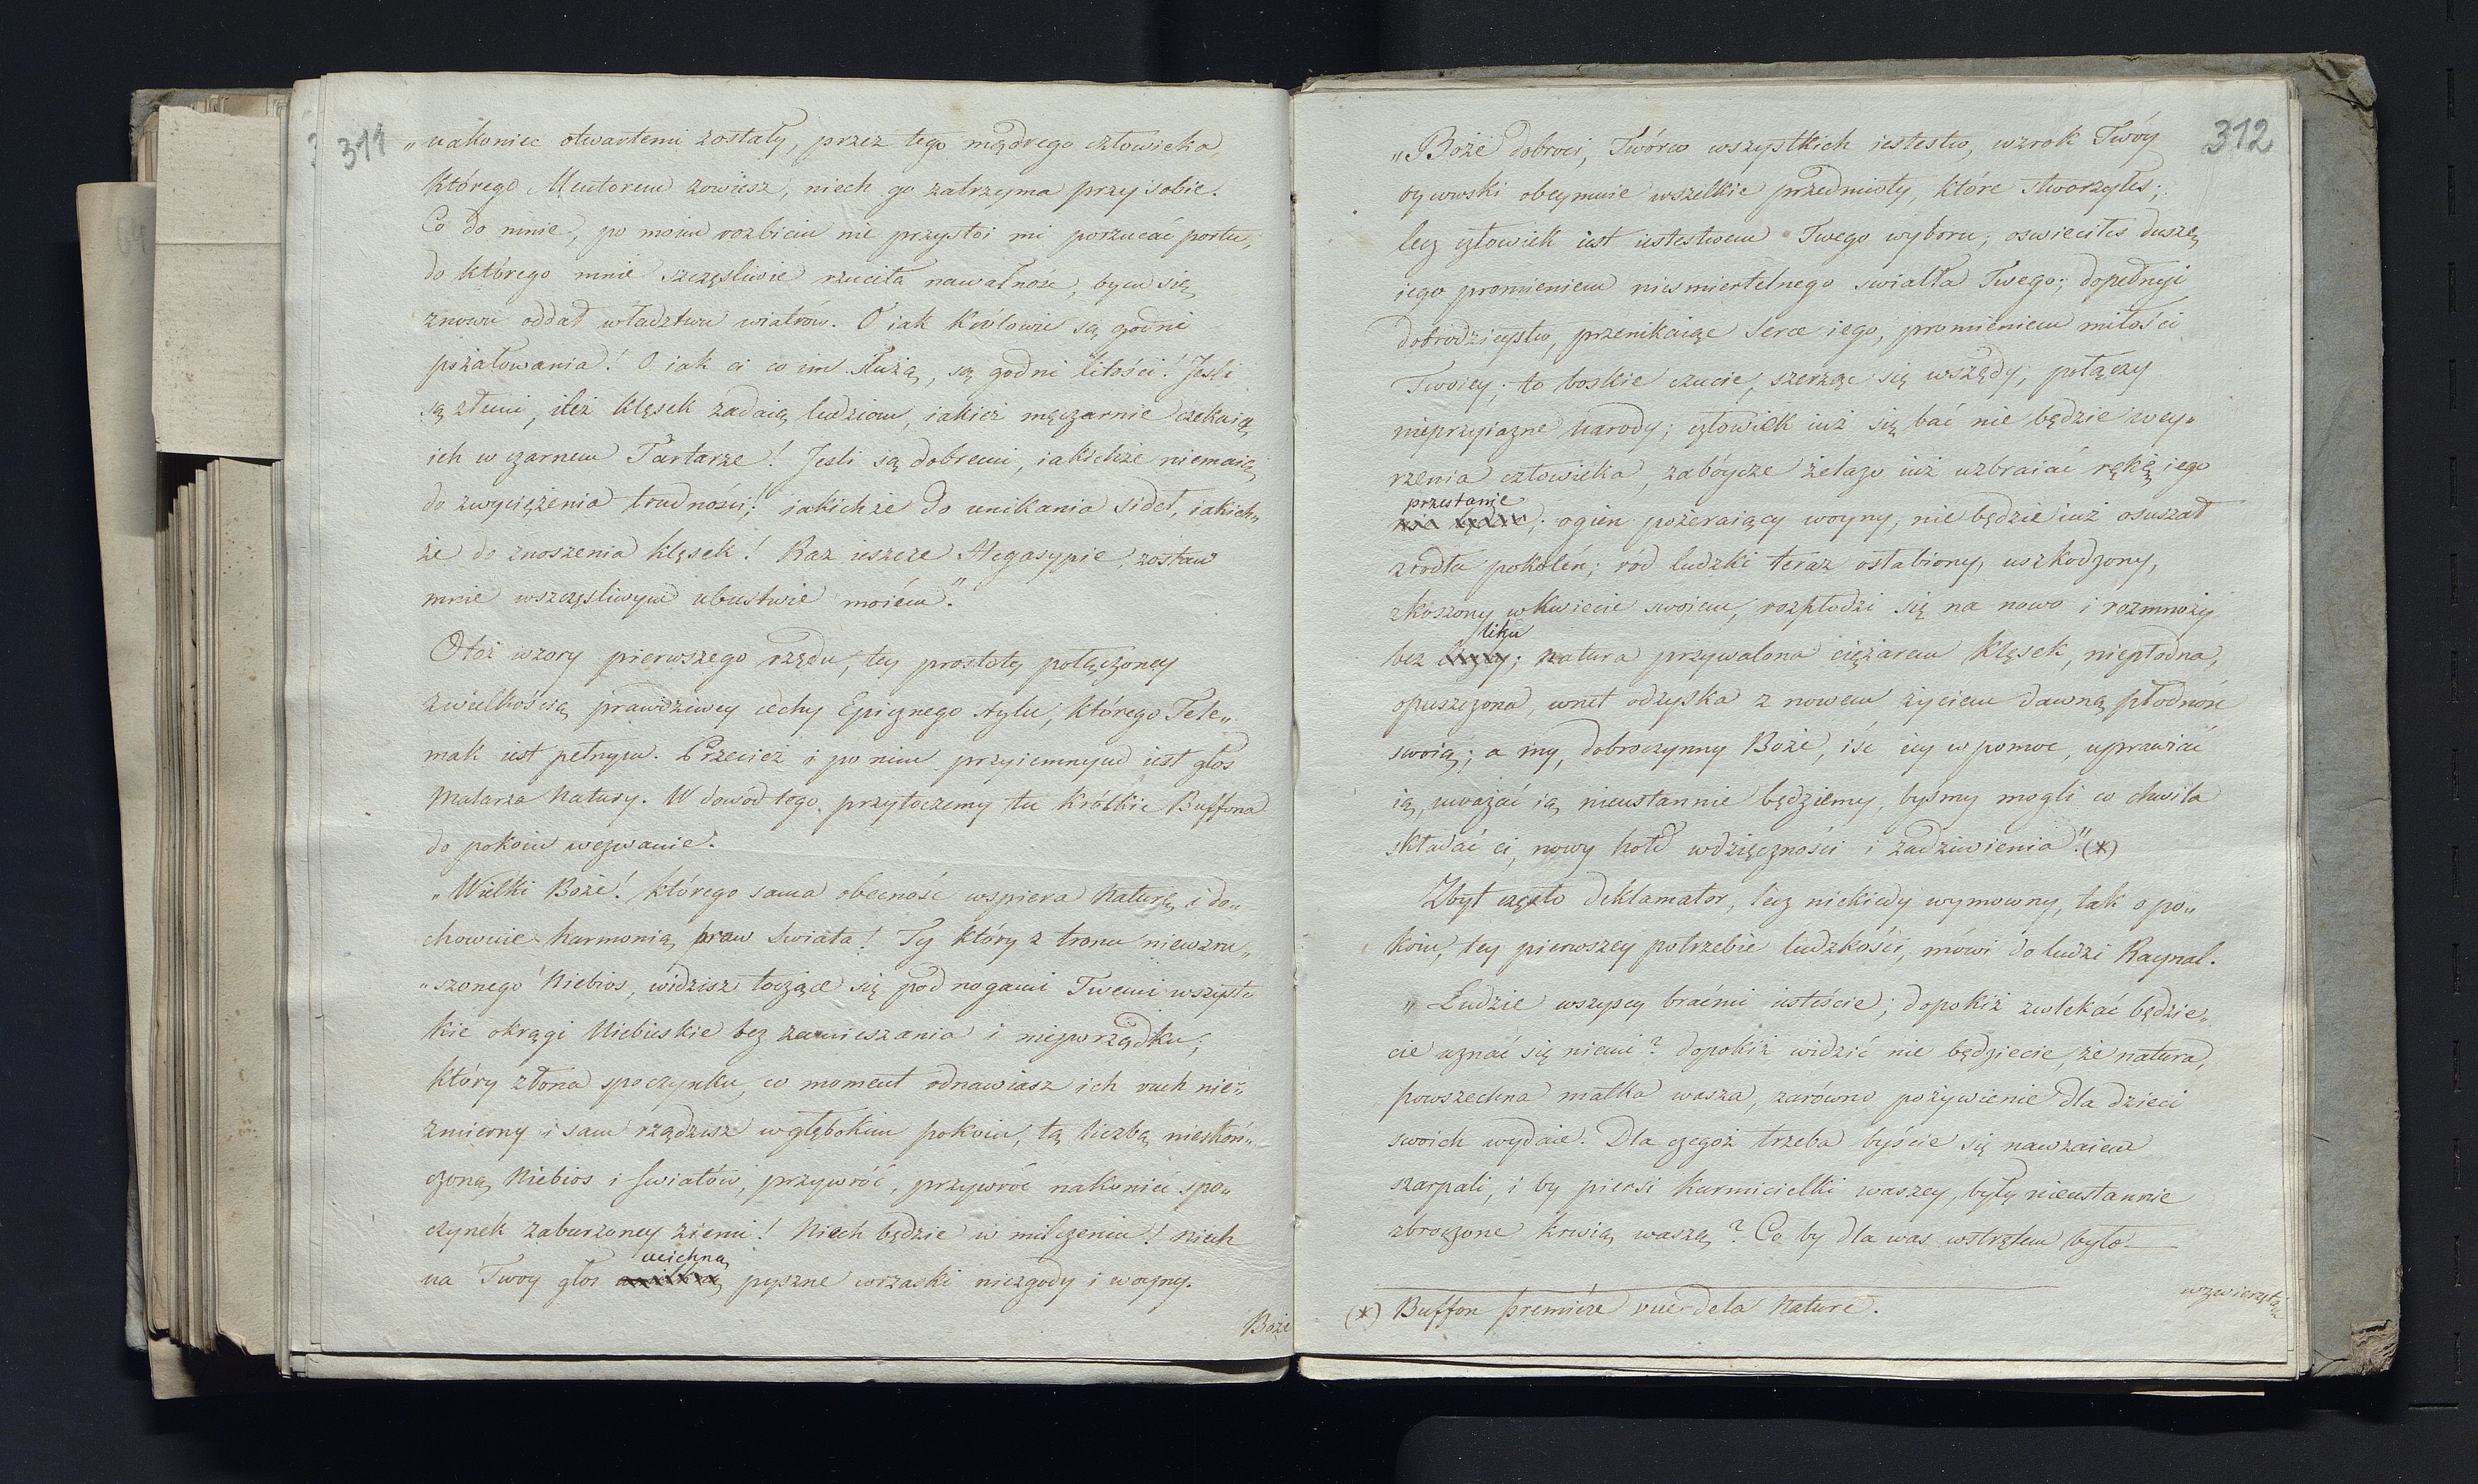 311
„nakoniec otwartemi zostały, przez tego mądrego człowieka,
którego Mentorem zowiesz, niech go zatrzyma przy sobie.
Co do mnie, po moim rozbiciu nie przystoi mi porzucać portu,
do którego mnie szczęsliwie rzuciła nawałność, bym się
znowu oddał władztwu wiatrów. O iak Królowie są godni
pożałowania! O iak ci co im służą, są godni litości! Jesli
są złemi, ileż klęsek zadaią ludziom, iakież męczarnie czekaią
ich w czarnem Tartarze! Jesli są dobremi, iakichże niemaią
do zwyciężenia trudności! iakichże do unikania sideł, iakich„
że do znoszenia klęsek! Raz ieszcze Hegasypie, zostaw
mnie wszczęsliwym ubustwie moiém."
Otóż wzory pierwszego rzędu, tey prostoty połączoney
zwielkością, prawdziwey cechy Epicznego stylu, którego Tele„
mak iest pełnym. Przecież i po nim przyiemnym iest głos
Malarza Natury. W dowód tego, przytoczemy tu krótkie Buffona
do pokoiu wezwanie.
„Wielki Boże! którego sama obecność wspiera Naturę, i do„
chowuie harmonią praw Swiata! Ty który z tronu niewzru„
„szonego Niebios, widzisz toczące się pod nogami Twemi wszyst„
kie okręgi Niebieskie bez zamieszania i nieporządku;
który złona spoczynku, co moment odnawiasz ich ruch nie„
zmierny i sam rządzisz wgłębokim pokoiu, tą liczbą nieskoń„
czoną Niebios i Swiatów, przywróć, przywróć nakoniec spo„
czynek zaburzoney ziemi! Niech będzie w milczeniu! niech
ucichną
na Twoy głos pyszne wrzaski niezgody i woyny.
Boże
312
„Boże dobroci, Twórco wszystkich iestestw, wzrok Twóy
oycowski obeymuie wszelkie przedmioty, które stworzyłes;
lecz człowiek iest iestestwem Twego wyboru; oswieciłes duszę
iego promieniem niesmiertelnego swiatła Twego; dopełniy
dobrodzieystw, przenikaiąc serce iego, promieniem miłości
Twoiey; to boskie czucie, szerząc się wszędy, połączy
nieprzyiazne Narody; człowiek iuż się bać nie będzie wey„
rzenia człowieka, zabóycze żelazo iuż uzbraiać rękę iego
przestanie
nie będzie; ogien pożeraiący woyny, nie będzie iuż osuszał
zrodła pokoleń; ród ludzki teraz osłabiony, uszkodzony,
zkoszony wkwiecie swoiem, rozpłodzi się na nowo i rozmnoży
liku
bez liczby; natura przywalona ciężarem klęsek, niepłodna,
opuszczona, wnet odzyska z nowem życiem dawną płodność
swoią; a my, dobroczynny Boże, iść iey w pomoc, uprawiać
ią, uważać ią nieustannie będziemy, byśmy mogli co chwila
składać ci, nowy hołd wdzięczności i zadziwienia". (*)
Zbyt często deklamator, lecz niekiedy wymowny, tak o po„
koiu, tey pierwszey potrzebie ludzkości, mówi do ludzi Raynal.
„Ludzie wszyscy braćmi iesteście; dopokiż zwlekać będzie„
cie uznać się niemi? dopokiż widzić nie będziecie, że natura,
powszechna matka wasza, zarówno pożywienie dla dzieci
swoich wydaie. Dla czegoż trzeba byście się nawzaiem
szarpali, i by piersi karmicielki waszey, były nieustannie
zbroczone krwią waszą? Co by dla was wstrętem było
wzwierzętach
(*) Buffon première vue de la Nature.